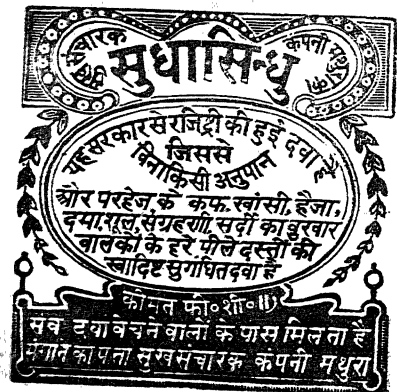 सुख संचारक कंपनी मथुरा का
सुधासिन्धु
यह सरकार से रजिष्ट्री की हुई दवा है
जिससे
बिना किसी अनुपान
और परहेज के कफ, खांसी, हैजा,
दमा, शूल, संग्रहणी, सर्दी का बुखार
बालकों के हरे, पीले दस्तों की
स्वादिष्ट सुगंधित दवा है
कीमत फी॰ शी॰ ॥)
सब दवा बेचने वालों के पास मिलता है
मंगाने का पता सुख संचारक कंपनी मथुरा